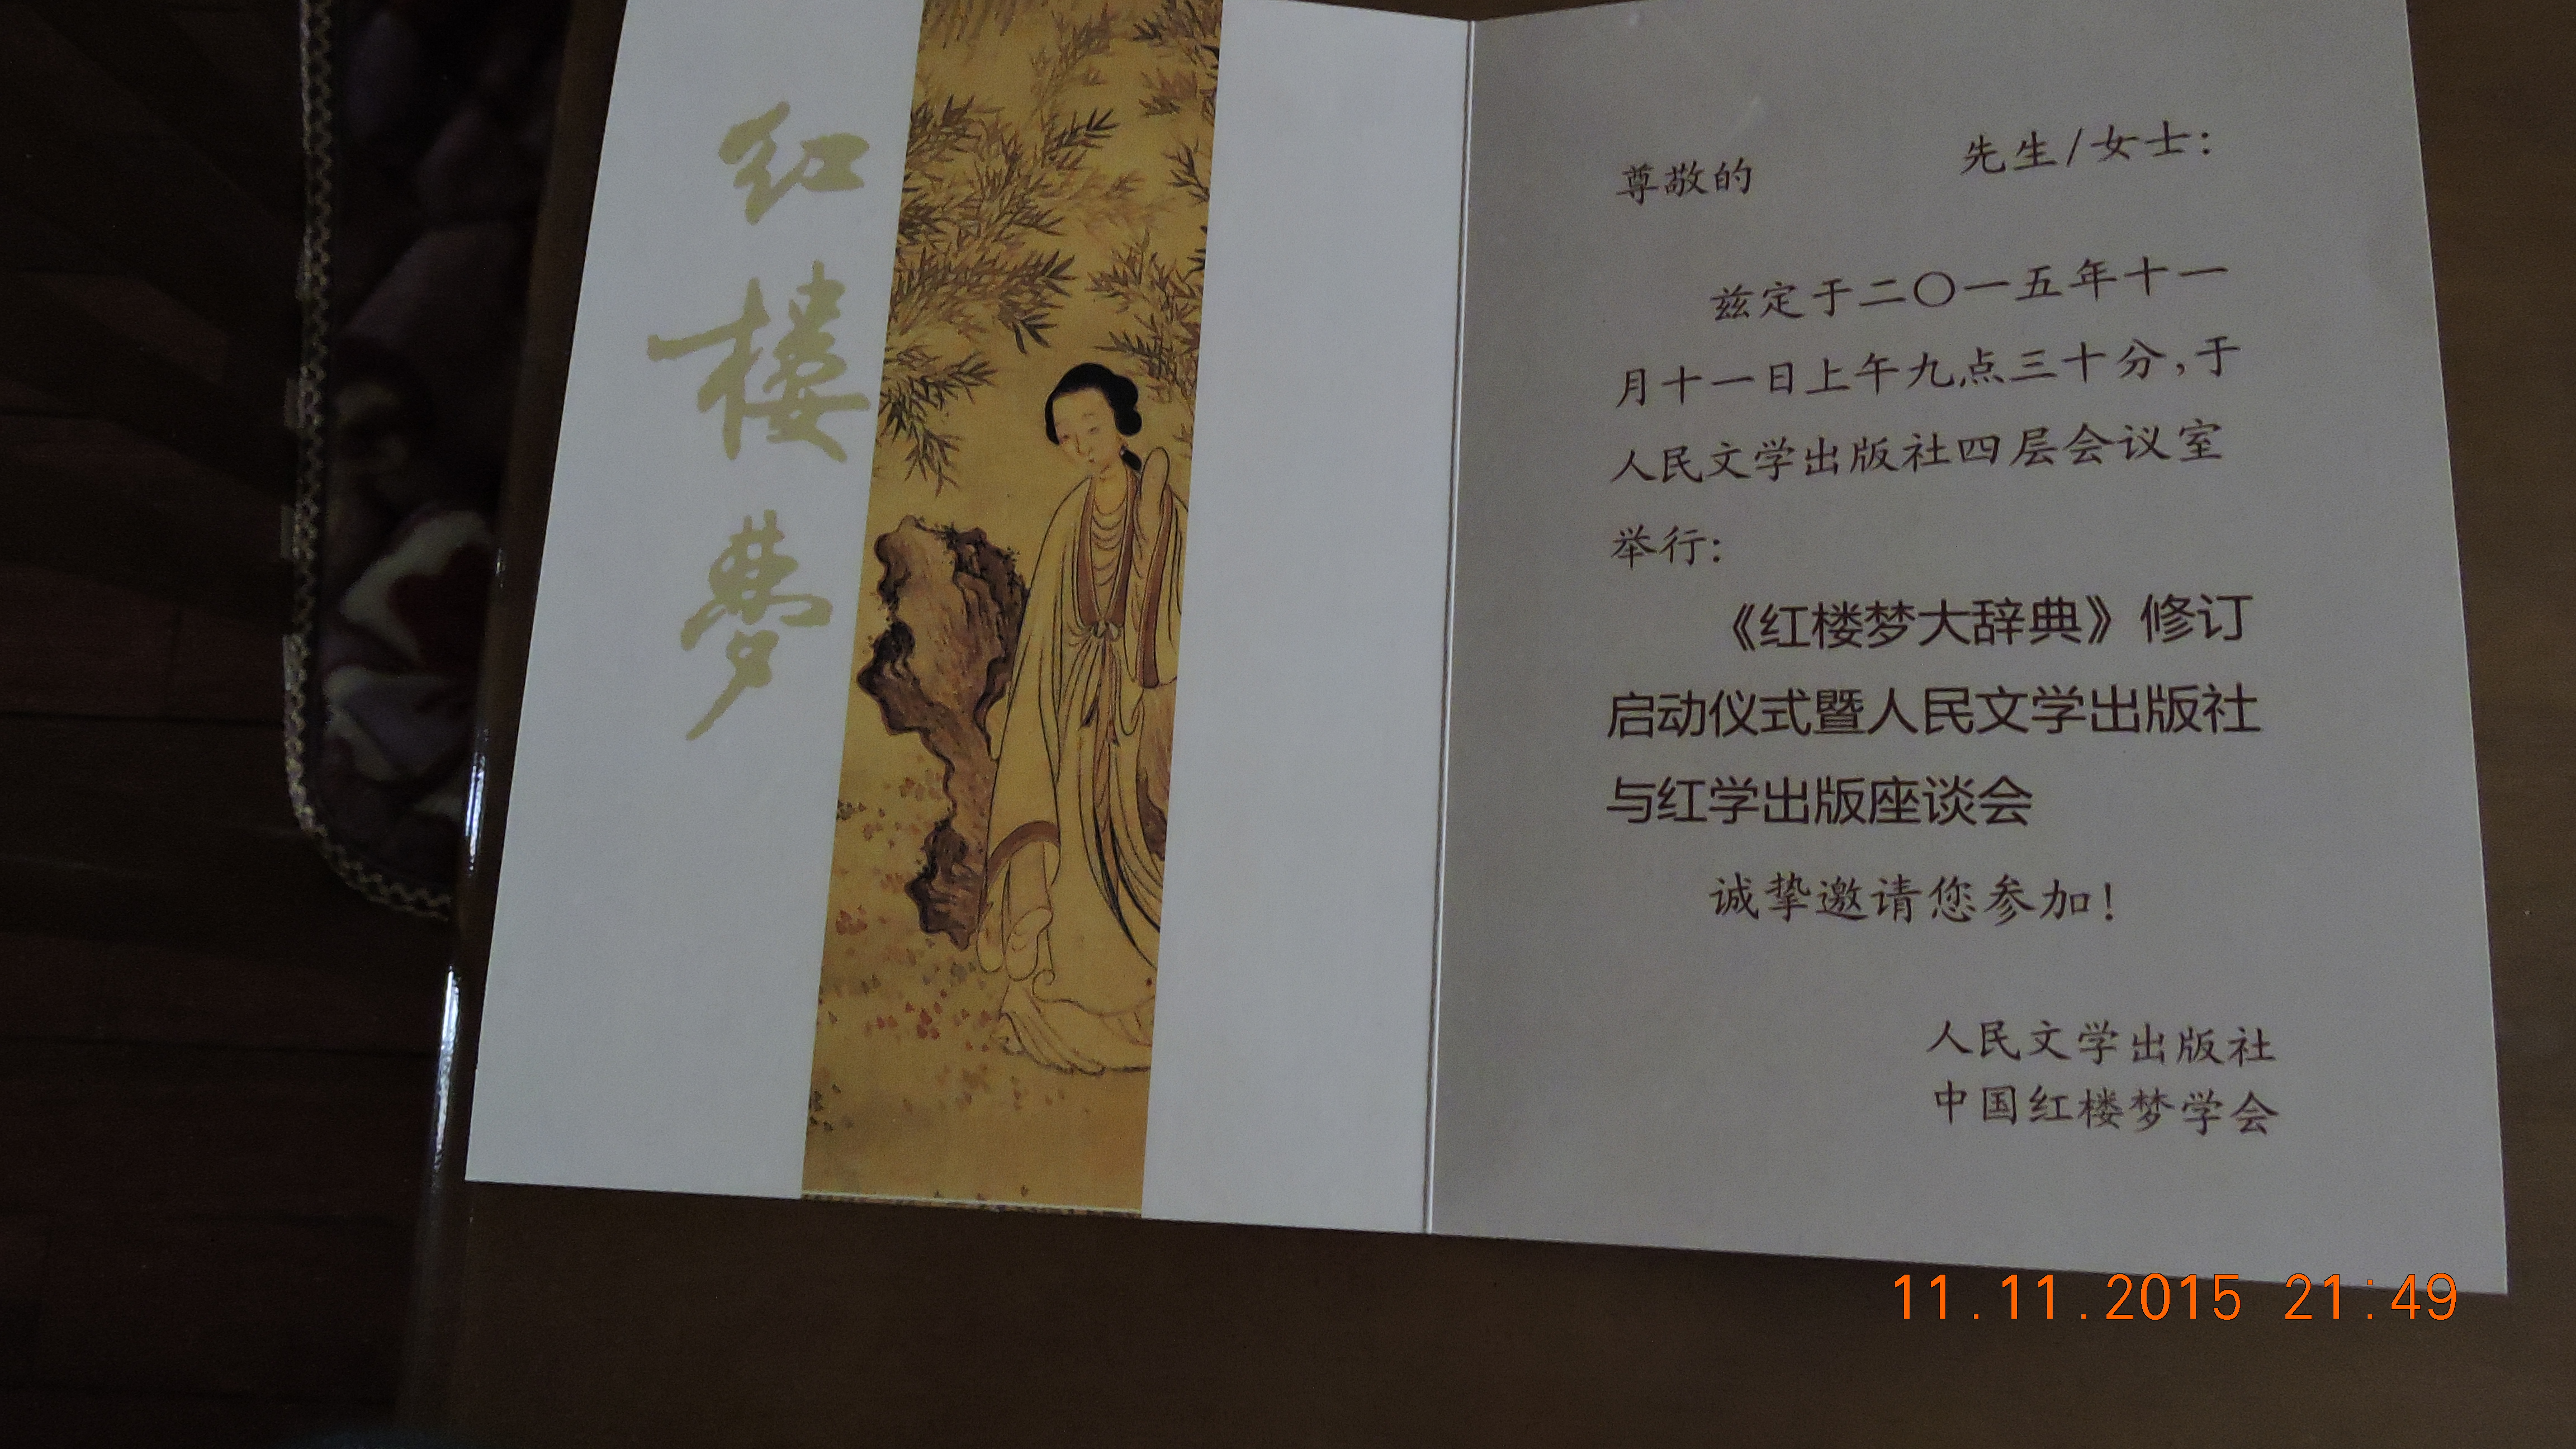 红
楼
夢
尊敬的 先生/女士：
兹定于二〇一五年十一
月十一日上午九点三十分，于
人民文学出版社四层会议室
举行：
《红楼梦大辞典》修订
启动仪式暨人民文学出版社
与红学出版座谈会
诚挚邀请您参加！
人民文学出版社
中国红楼梦学会
11.11.2015 21:49